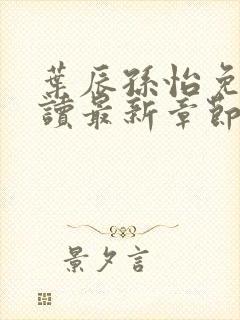 葉辰孫怡免
讀最新章節
景夕言